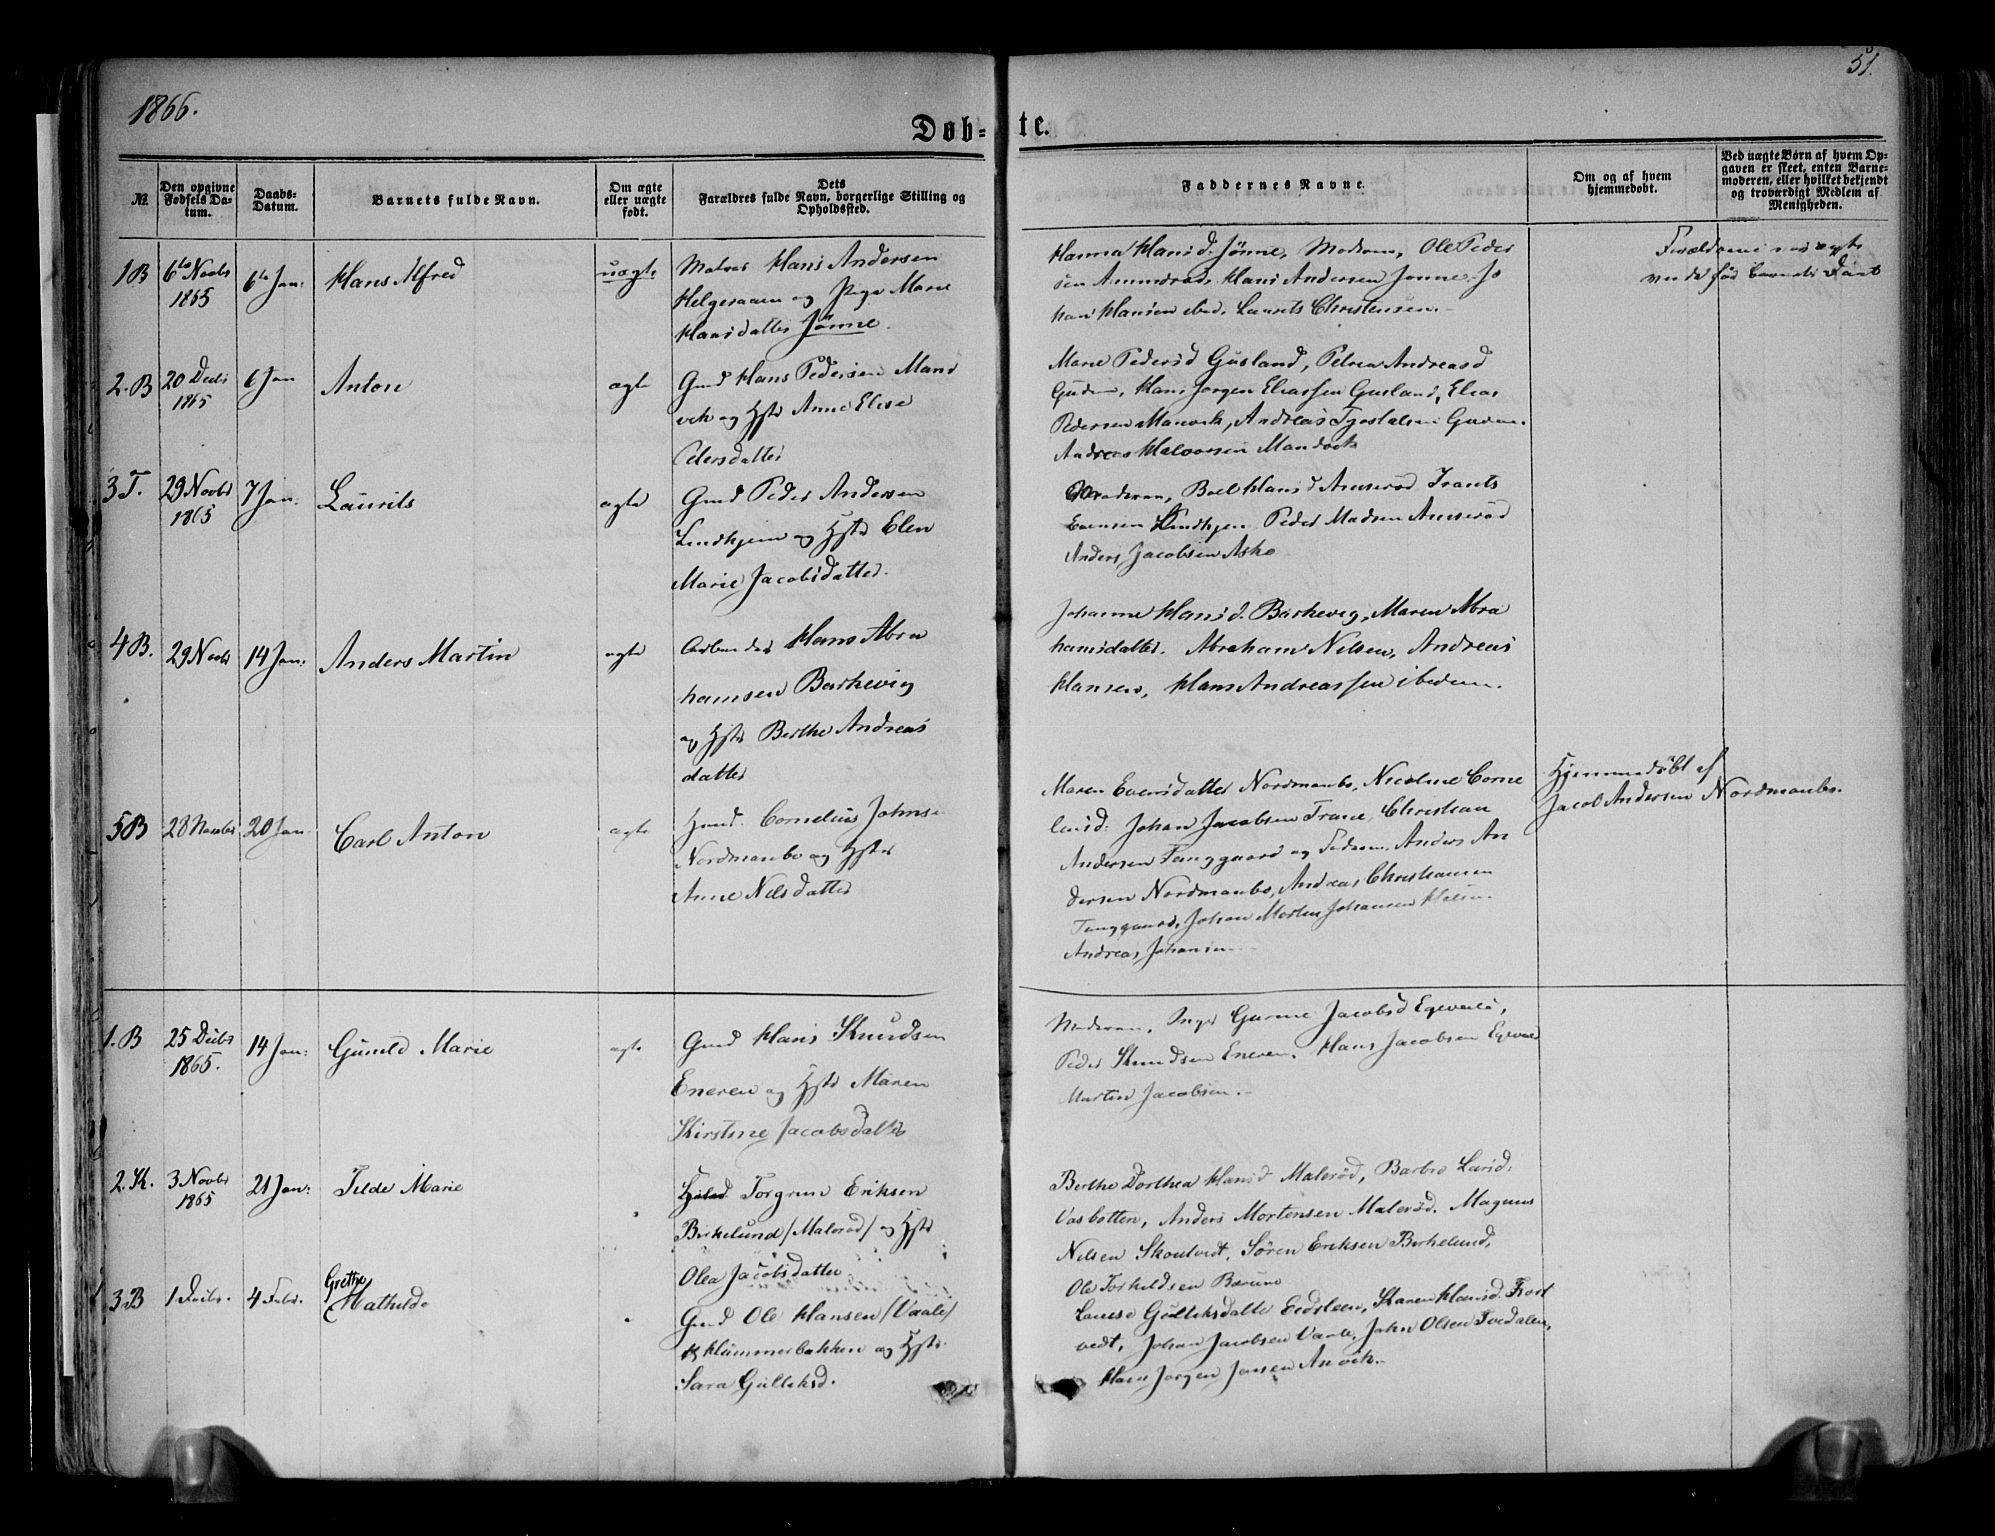 1866.
51.
Døb-
te.
№
Den opgivne Fødsels Da-tum.
Daabs-Datum.
Barnets fulde Navn.
Om ægte eller uægte født.
Dets Forældres fulde Navn, borgerlige Stilling og Opholdssted.
Faddernes Navne.
Om og af hvem hjemmedøbt.
Ved uægte Børn af hvem Op-gaven er skeet, enten Barne-moderen, eller hvilket bekjendt og troværdigt Medlem af Menigheden.
1B
6te Novbr
1865
6te Jan:
Hans Alfred
uægte
Matros Hans Andersen
Helgeraaen og Inge Marie
Hansdatter Jønne.
Hanna Hansd. Jønne, Moderen, Ole Peder
sen Ammerød, Hans Andersen Jønne, Jo
han Hansen ibid. Laurits Christensen.
før Barnets Daab
2.B
20 Decbr
1865
6 Jan
Anton
ægte
Gmd Hans Pedersen Mand
vik og Hstr Anne Elise
Edersdatter
Marie Pedersd Gusland, Petrea Andreasd
Hans Jørgen Eliassen Gusland, Elias
Pedersen Manvik, Andreas
Andreas Halvorsen Mandvik
3 T.
29 Novbr
1865
7 Jan.
Laurits
ægte
Gmd Peder Andersen
Lindhjem og Hstr Elen
Marie Jacobsdatter.
Moderen, Boel Hansd Amserød Frants
Evensen Lindhjem Peder Madsen Amserød
Anders Jacobsen Aske
4 B.
29 Novbr
14 Jan:
Anders Martin
ægte
Arbeider Hans Abra
hamsen Barkevig
og Hstr Berthe Andreas
datter
Johanne Hansd. Barkevig, Maren Abra
hamsdatter. Abraham Nilsen, Andreas
Hansen, Hans Andreassen ibidem.
5 B
28 Novbr
20 Jan
Carl Anton
ægte
Cornelius Johns
Nordmanbo og Hstr
Anne Nilsdatter
Maren Evensdatter Nordmanbo, Nicoline Corne
liusd. Johan Jacobsen Frane, Christian
Andersen Tanggaard og Anders An
dersen Nordmanbo, Andreas Christiansen
Tanggaard, Johan Morten Johansen
Andreas Johansen
Hjemmedøbt af
Jacob Andersen Nordmanbo.
1. B
25 Decbr
1865.
14 Jan:
Gunild Marie
ægte
Gmd Hans Knudsen
Eneren og Hstr Maren
Kirstine Jacobsdatter
Moderen, Inger Gurine Jacobsd
Peder Knudsen Eneren. Hans Jacobsen
Martin Jacobsen.
2. K.
3 Novbr
1865
21 Jan:
Tilde Marie
Torgrim Eriksen
Birkelund /Malerød/ og Hstr
Olea Jacobsdatter
Berthe Dorthea Hansd Malerød, Barbro Larsd:
Vasbotten, Anders Mortensen Malerød. Magnus
Nilsen Skoutvedt, Søren Eriksen Birkelund,
Ole Torkildsen
3. B
1 Decbr.
4 Febr.
Grethe
Mathilde
Gmd Ole Hansen /Vaale/
Klummerbakken og Hstr
Sara Gulliksd.
Gulliksdatter Eidsteen, Karen Hansd.
vedt, Johan Jacobsen Vaale, John Olsen Tvedalen,
Hans Jørgen Jansen Anvik.